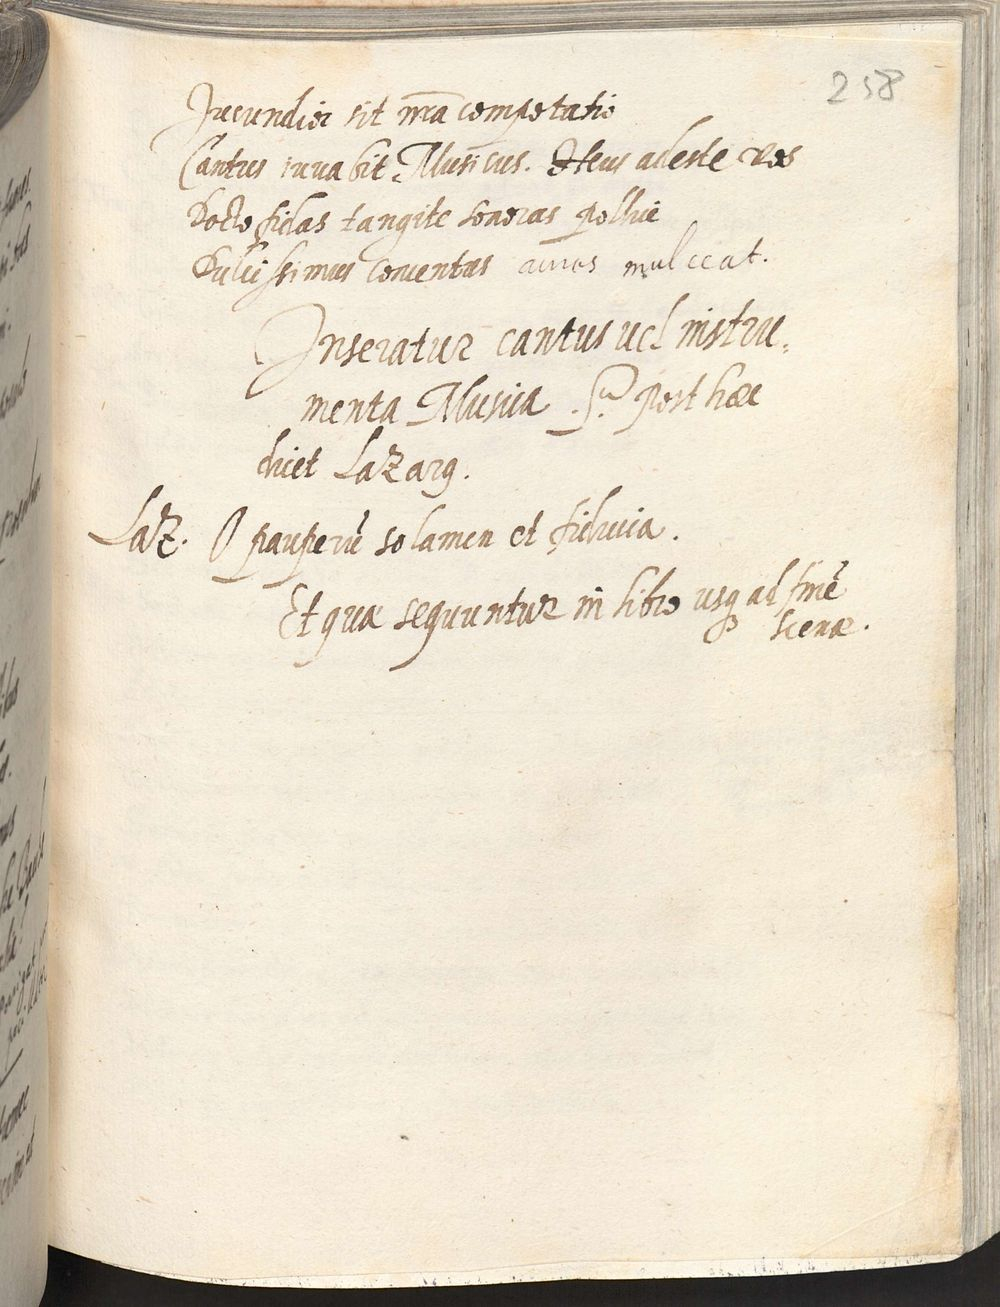 258
Jucundior sit nr̄a compotatio
Cantus iuuabit Musicus. Heus adeste vos
Docto fidas tangite sonoras pollice
Dulcissimus concentus aures mulceat.
Inseratur cantus uel instru-
menta Musica. Post haec
dicet Lazarg.
Laz. O pauperū solamen et fiducia.
Et quae sequuntur in libro usq ad finē
scenae.